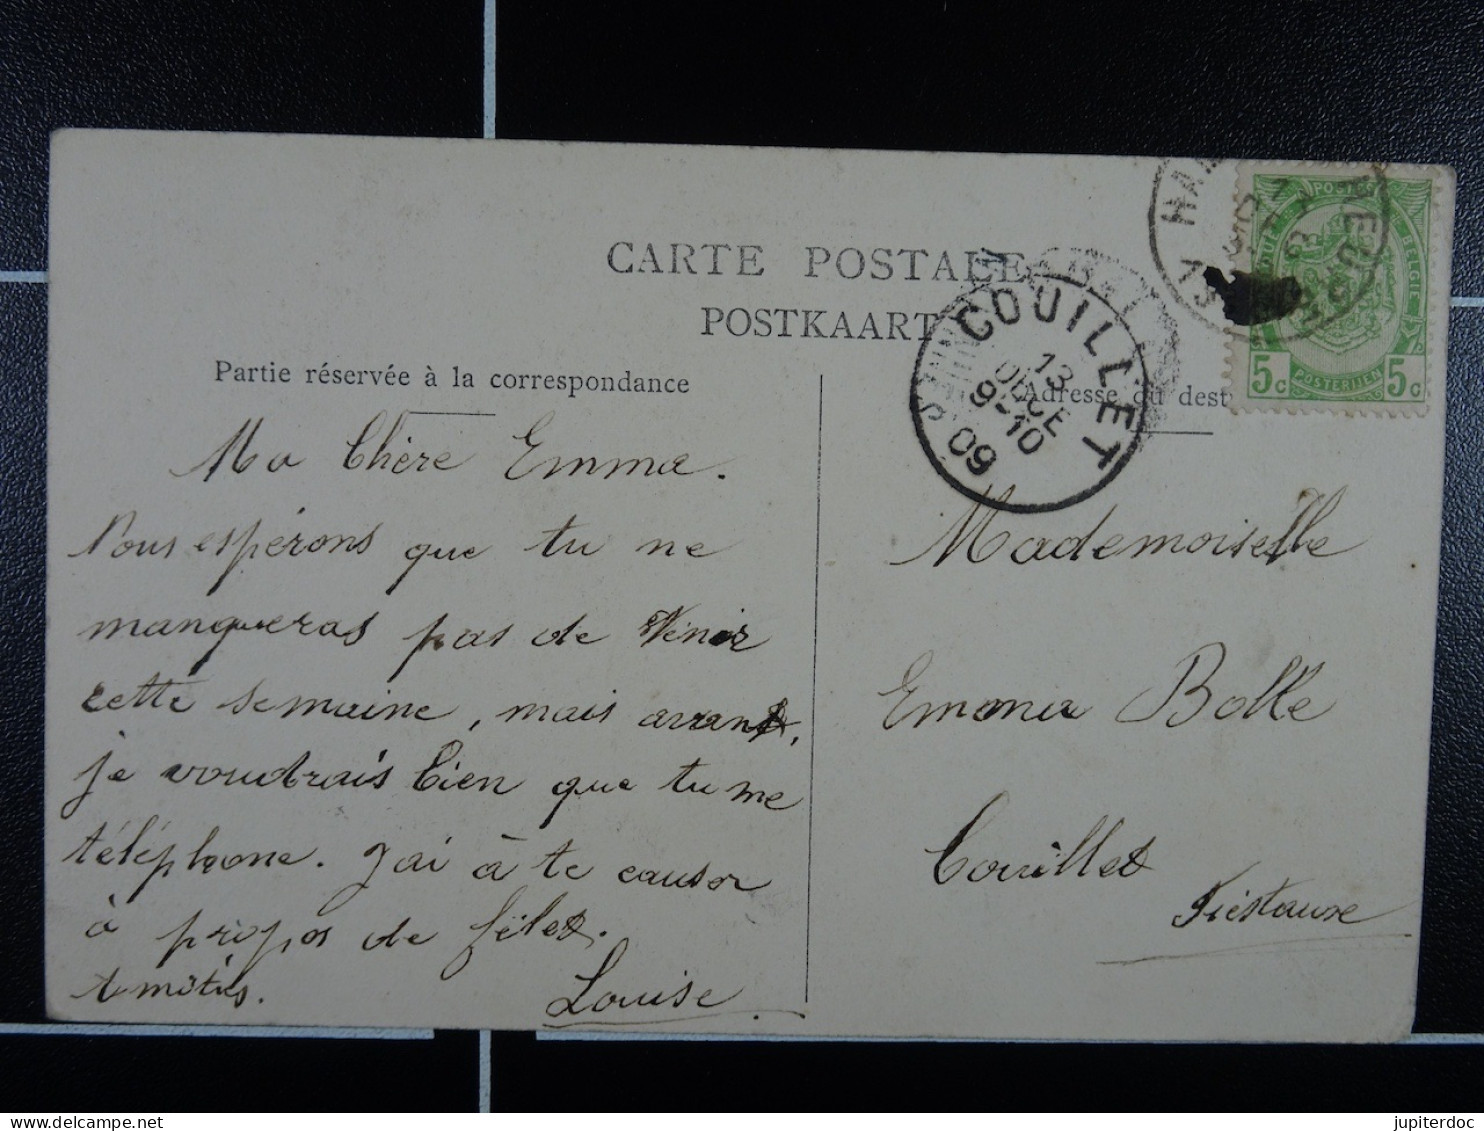 CARTE POSTALE
POSTKAART
Partie réservée à la correspondance
Adresse du dest
COUILLET
13
DECE
9-10
09
HAI
13
POSTES
BELGIE
5c POSTERIJEN 5c
Ma Chère Emma.
Nous espérons que tu ne
manqueras pas de venir
cette semaine, mais avant,
je voudrais bien que tu me
téléphone. J'ai à te causer
à propos de
Amitiés. Louise
Mademoiselle
Emma Bolle
Couillet
Fiestaux
jupiterdoc